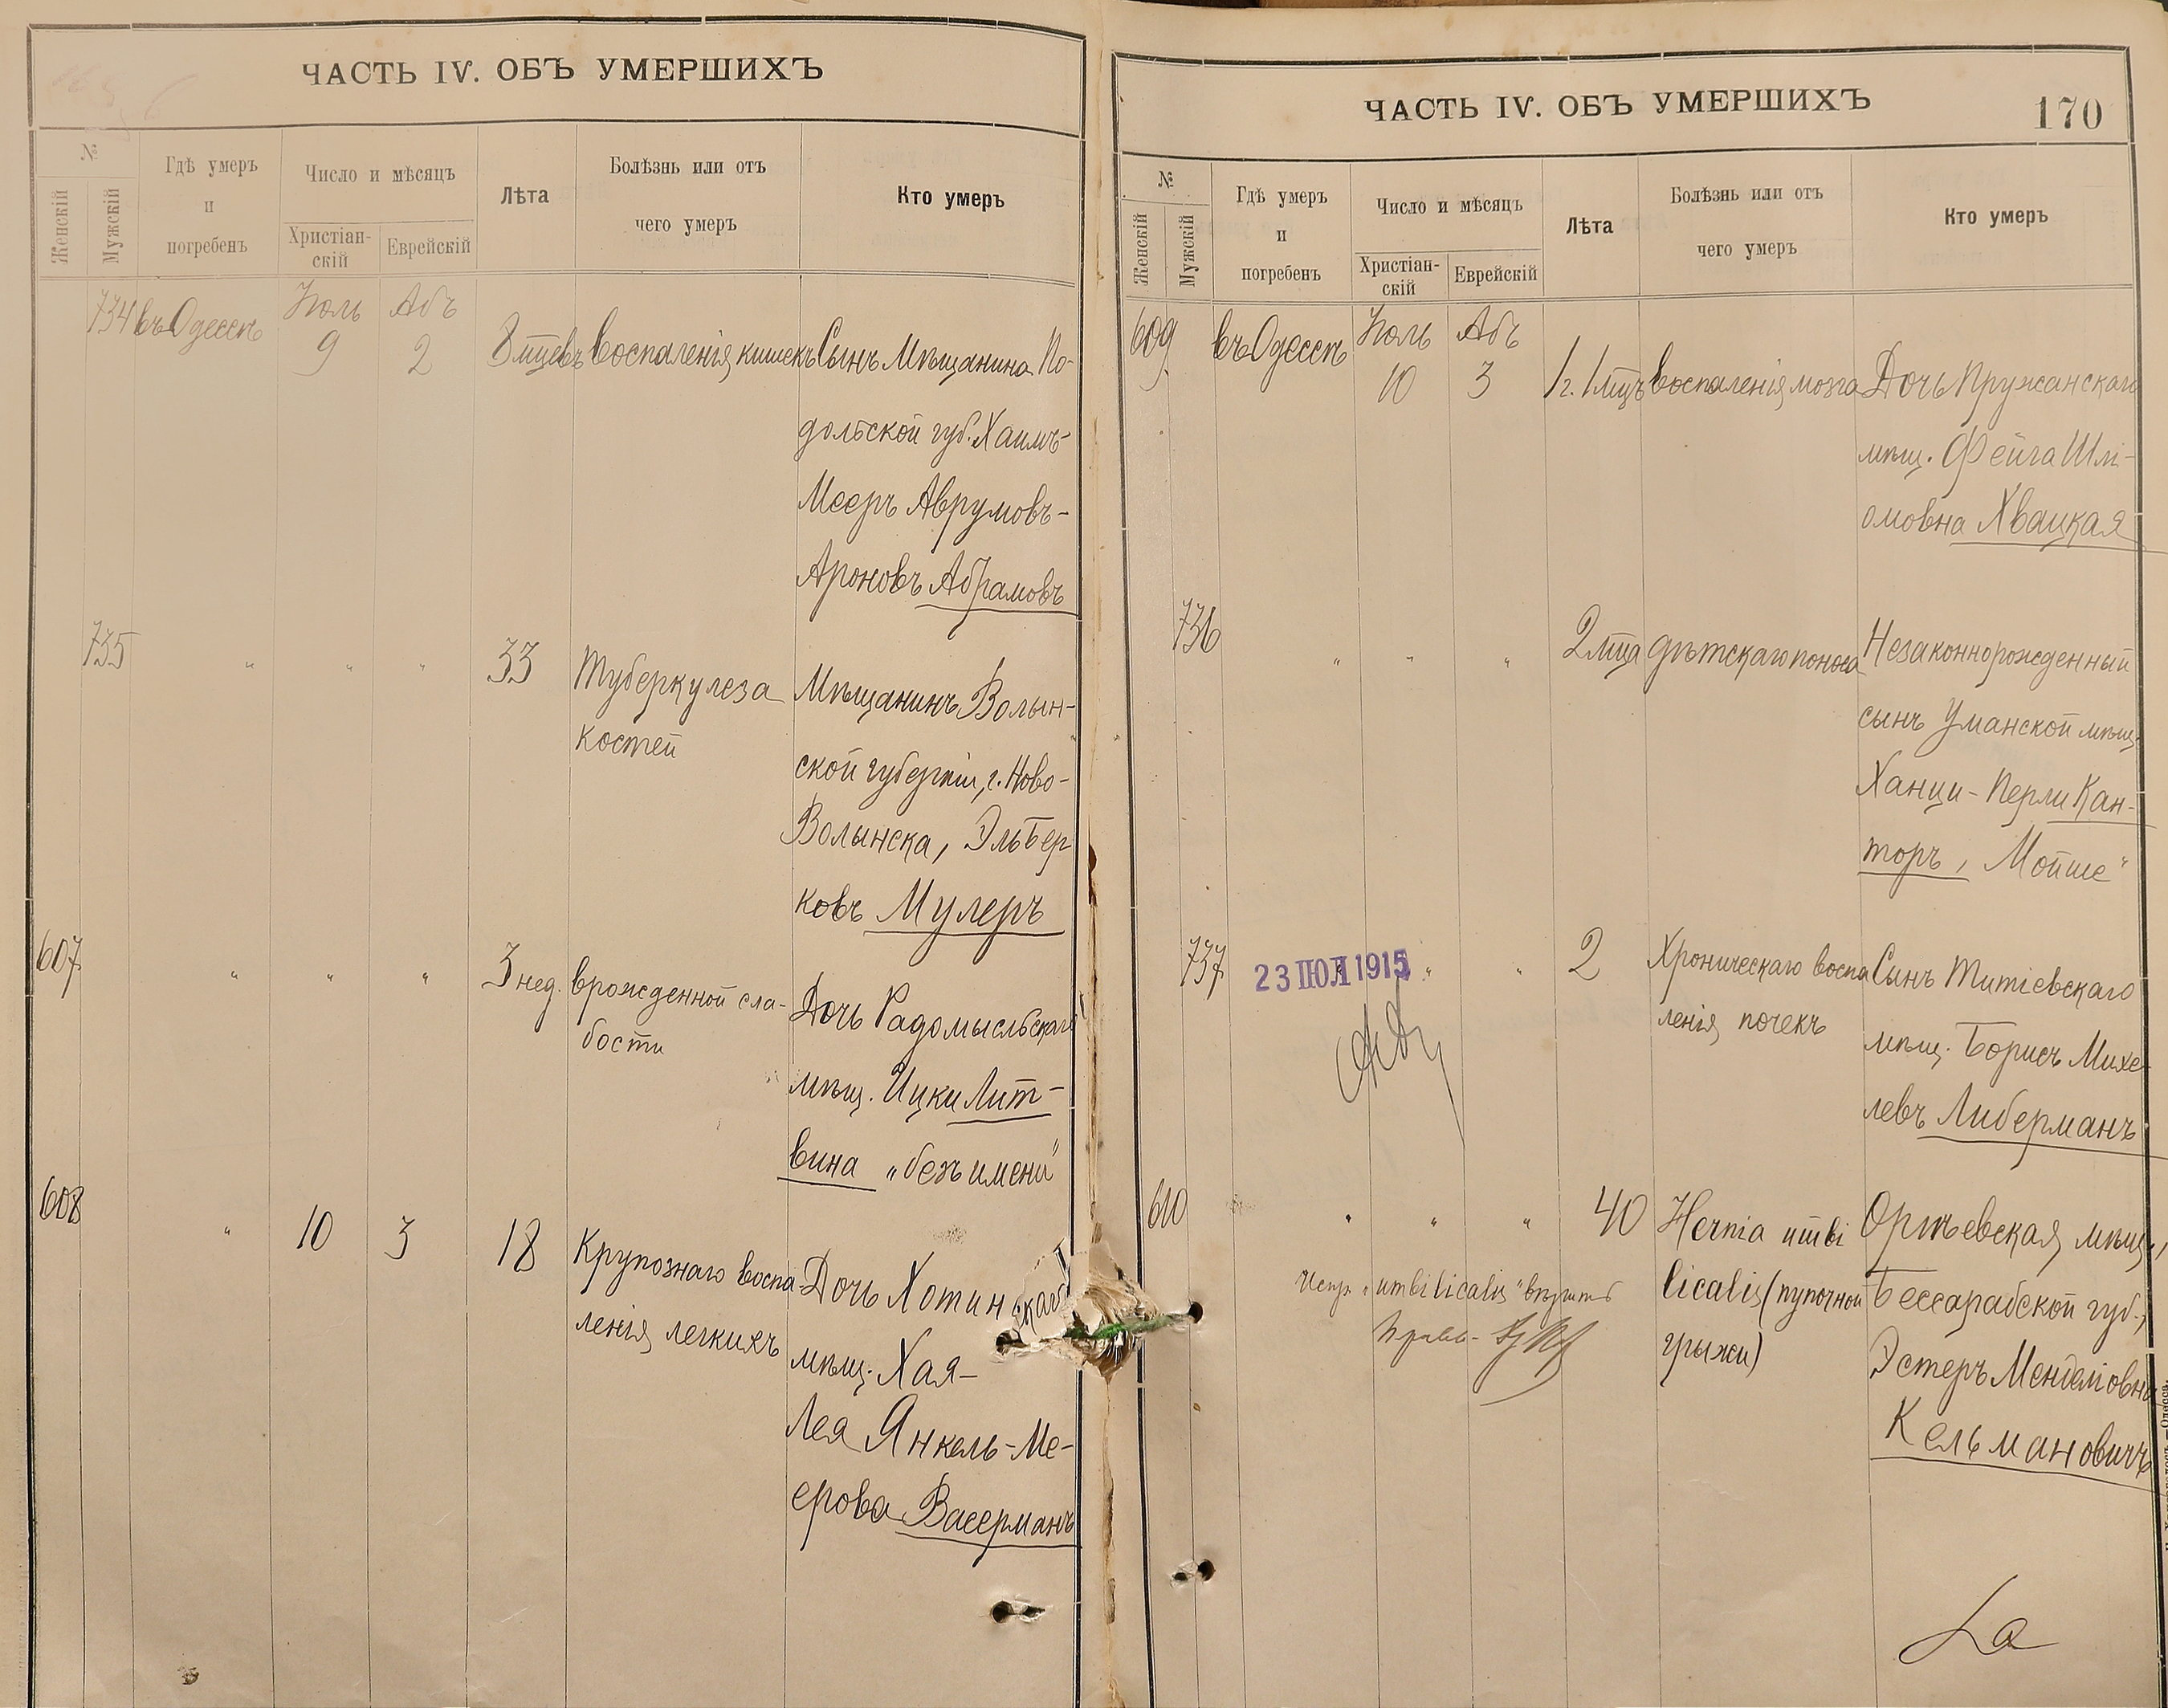 ЧАСТЬ IV. ОБЪ УМЕРШИХЪ
№
Женскій
Мужскій
Гдѣ умеръ
и
погребенъ
Число и мѣсяцъ
Христіан-
скій
Еврейскій
Лѣта
Болѣзнь или отъ
чего умеръ
Кто умеръ
734 въ Одессѣ Іюль Абъ
9 2 8 мцевъ воспаленія кишекъ Сынъ Мѣщанина По-
дольской губ. Хаимъ-
Мееръ Аврумовъ-
Ароновъ Абрамовъ
735 " " " 33 Туберкулеза Мѣщанинъ Волын-
костей
ской губерніи, г. Ново-
Волынска, Эль Бер
ковъ Мулеръ
607 " " " 3 нед. врожденной сла- Дочь Радомысльскаго
бости
мѣщ. Ицки Лит-
вина „безъ имени"
608 " 10 3 18 Крупознаго воспа- Дочь Хотинскаго
ленія легкихъ мѣщ. Хая-
Лея Янкель-Ме-
ерова Васерманъ
ЧАСТЬ IV. ОБЪ УМЕРШИХЪ
170
№
Женскій
Мужскій
Гдѣ умеръ
и
погребенъ
Число и мѣсяцъ
Христіан-
скій
Еврейскій
Лѣта
Болѣзнь или отъ
чего умеръ
Кто умеръ
609 въ Одессѣ Іюль Абъ
10 3 1 г. 1 мцъ воспаленія мозга Дочь Пружанскаго
мѣщ. Фейга Шлі-
омовна Хвацкая
736 " " " 2 мца дѣтскаго поноса Незаконнорожденный
сынъ Уманской мѣщ.
Ханци-Перли Кан-
торъ, „Мойше"
737 23 ІЮЛ 1915 " " 2 Хроническаго воспа Сынъ Титіевскаго
ленія почекъ
мѣщ. Борисъ Михе-
левъ Либерманъ
610 " " " 40 Hernia umbi Оргѣевская мѣщ.,
licalis (пупочной Бессарабской губ.,
грыжи) Эстеръ Менделіовна
Кельмановичъ
Испр. „umbilicalis" вѣрить